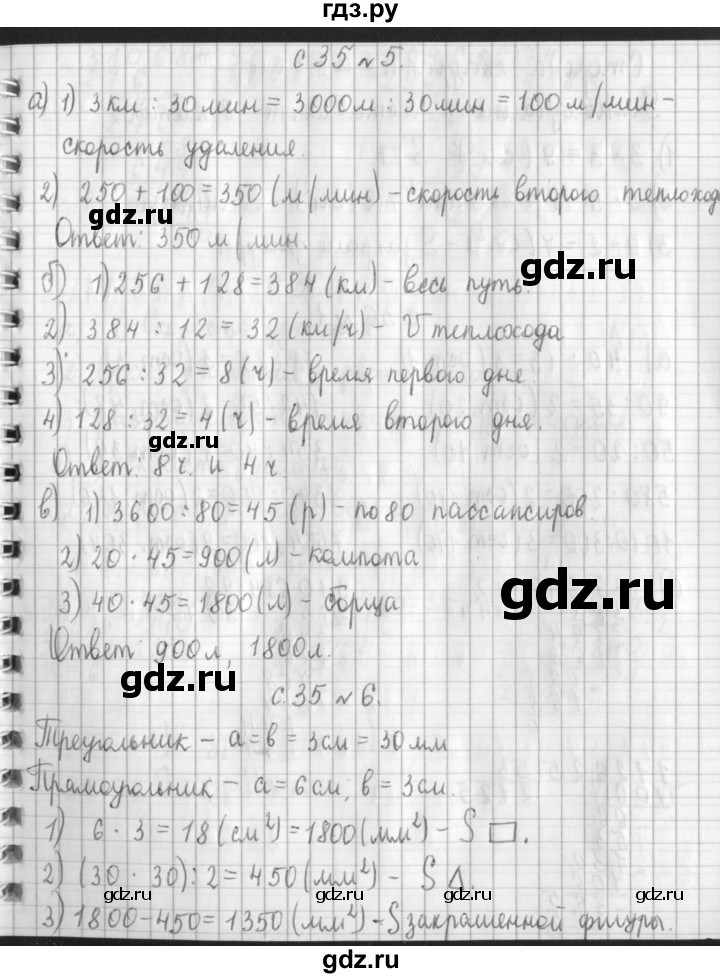 гдз.ру
с 35 № 5.
а) 1) 3 км : 30 мин = 3000 м : 30 мин = 100 м/мин –
скорость удаления.
2) 250 + 100 = 350 (м/мин) – скорость второго теплохода
gdz.ru
Ответ: 350 м/мин.
gdz.ru
б) 1) 256 + 128 = 384 (км) – весь путь.
2) 384 : 12 = 32 (км/ч) – V теплохода
3) 256 : 32 = 8 (ч) – время первого дня.
4) 128 : 32 = 4 (ч) – время второго дня.
gdz.ru
Ответ: 8 ч. и 4 ч
в) 1) 3600 : 80 = 45 (р) – по 80 пассансиров.
2) 20 · 45 = 900 (л) – компота
gdz.ru
3) 40 · 45 = 1800 (л) – борща
Ответ: 900 л, 1800 л.
gdz.ru
с. 35 № 6.
Треугольник – а = в = 3 см = 30 мм
Прямоугольник – а = 6 см, в = 3 см.
1) 6 · 3 = 18 (см²) = 1800 (мм²) – S □.
gdz.ru
2) (30 · 30) : 2 = 450 (мм²) – S Δ.
gdz.ru
gdz.ru
3) 1800 – 450 = 1350 (мм²) – S закрашенной фигуры.
gdz.ru